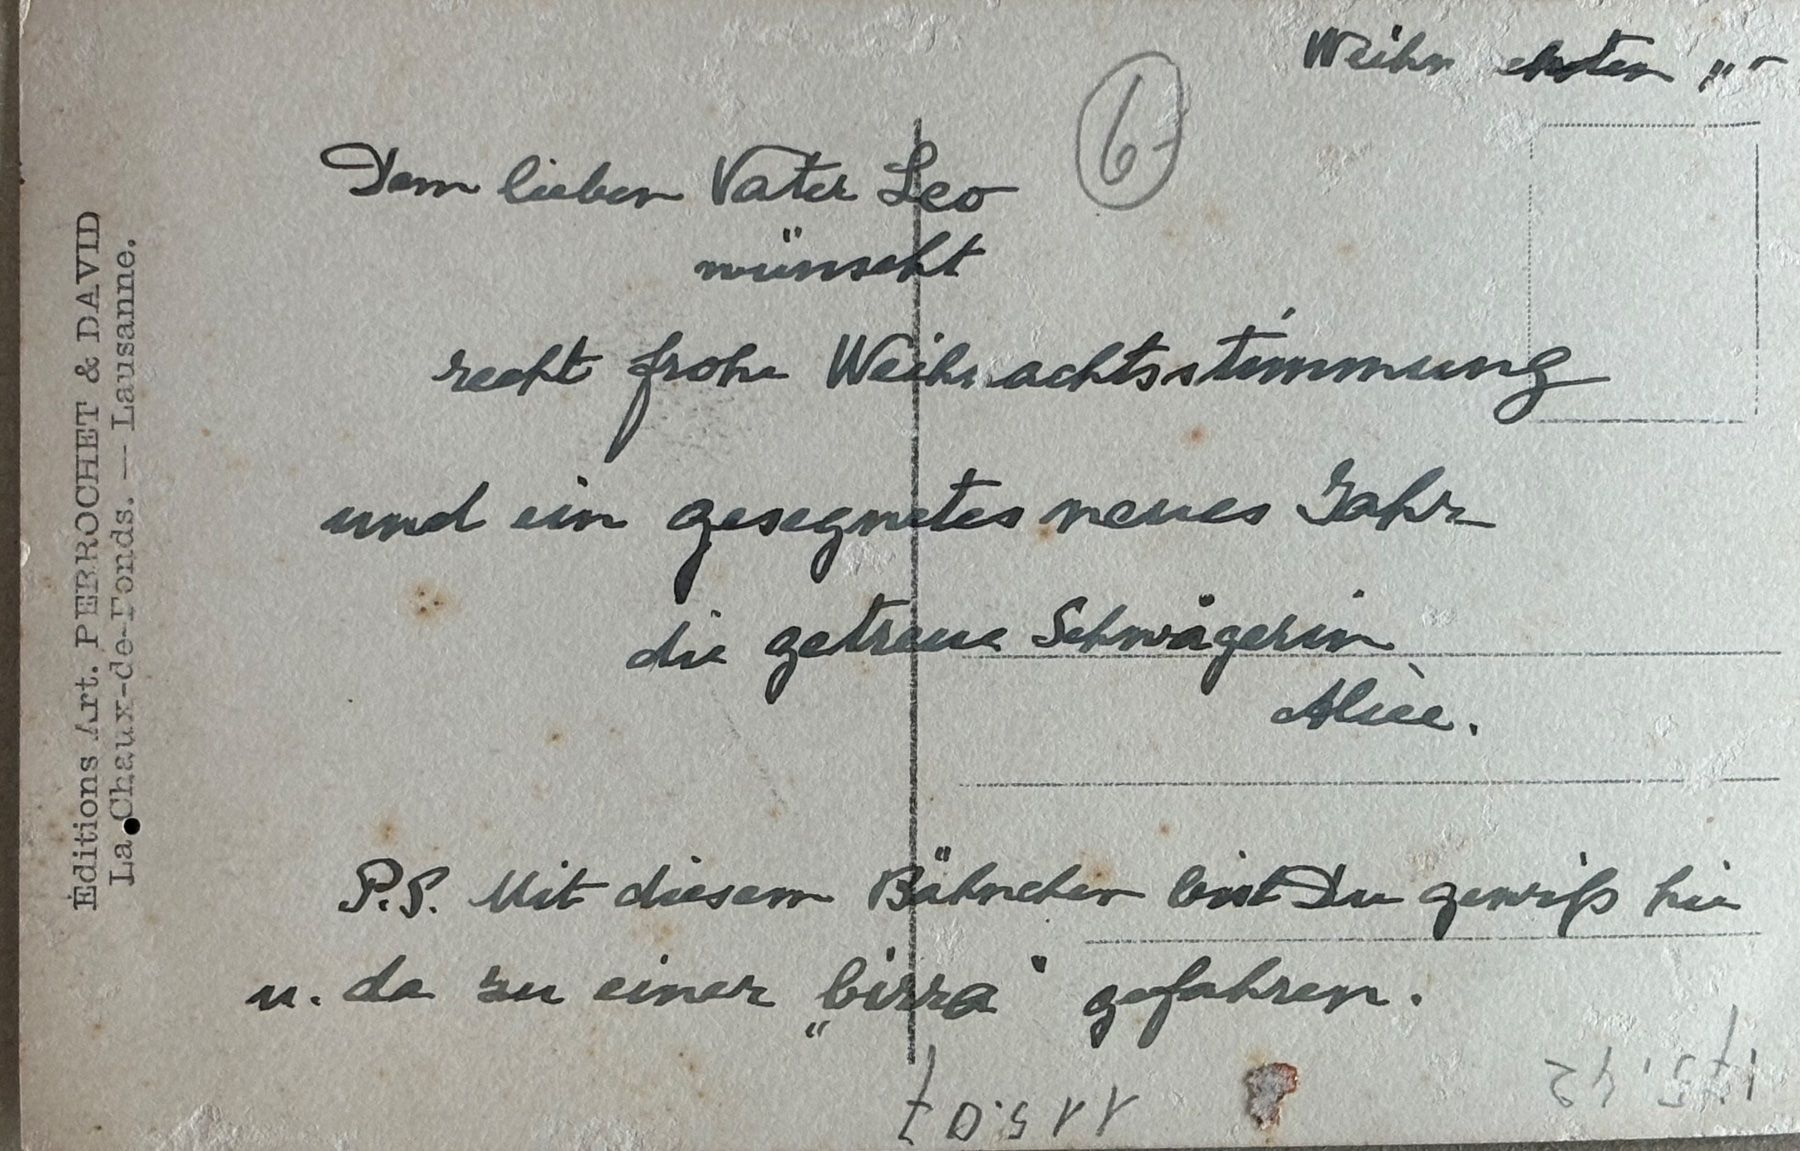 Weihn
6.-
Dem lieben Vater Leo
wünscht
recht frohe Weihnachtsstimmung
und ein gesegnetes neues Jahr
die getreue Schwägerin
Alice.
P.S. Mit diesem Bähnchen bist Du gewiß hie
u. da zu einer „birra“ gefahren.
Éditions Art. PERROCHET & DAVID
La Chaux-de-Fonds. — Lausanne.